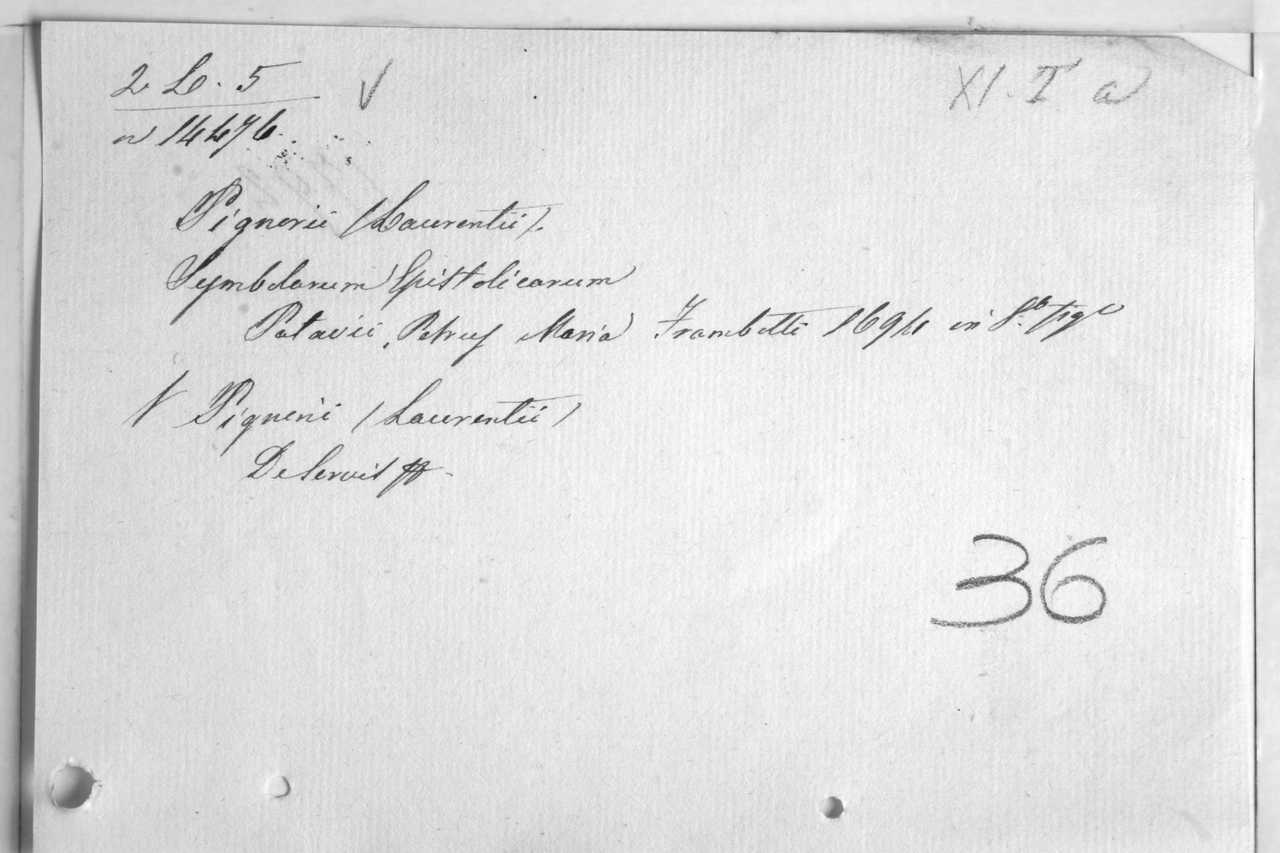 2 L. 5 V XI. I a
n 14476.
Pignorii (Laurentii).
Symbolarum Epistolicarum
Patavii, Petrus Maria Frambotti 1694 in 8.º
V Pignorii (Laurentii)
De Servis
36